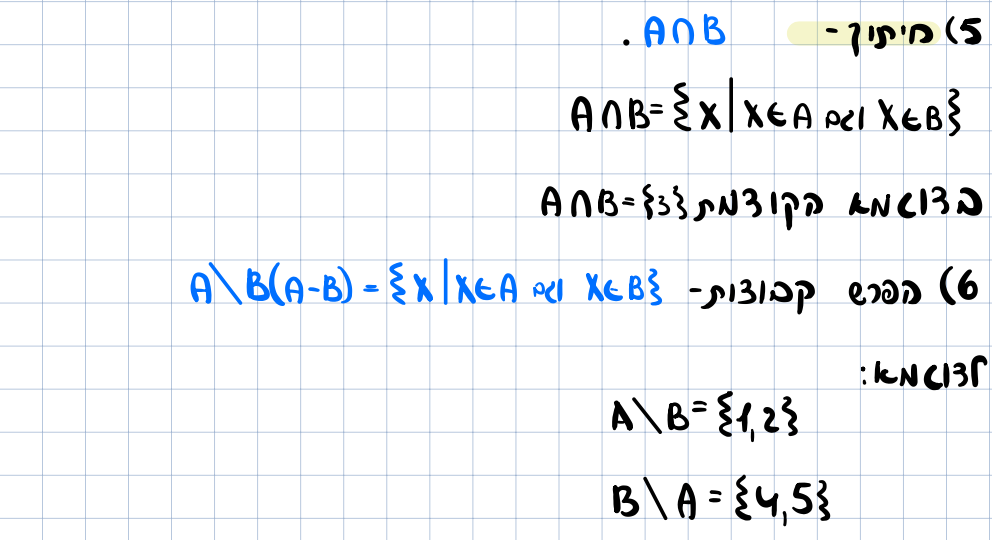 5) חיתוך - A∩B .
A∩B={x|x∈A וגם x∈B}
בדוגמא הקודמת A∩B={3}
6) הפרש קבוצות - A\B(A-B) = {x|x∈A וגם x∈B}
לדוגמא:
A\B={1,2}
B\A={4,5}